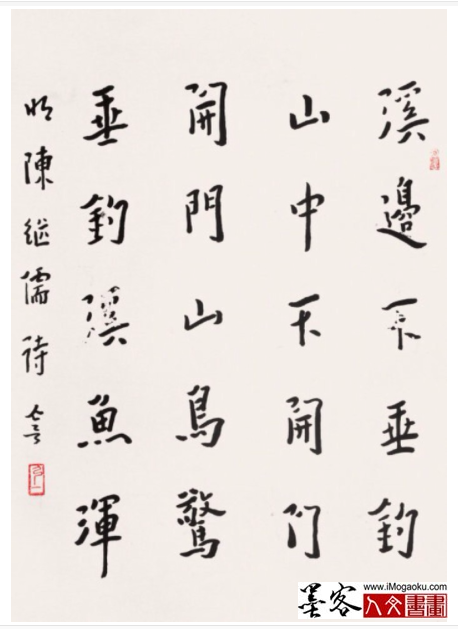 溪邊不垂釣
山中不開门
開門山鳥驚
垂釣溪魚渾
明陳继儒詩
墨客
www.iMogaoku.com
人文書畫